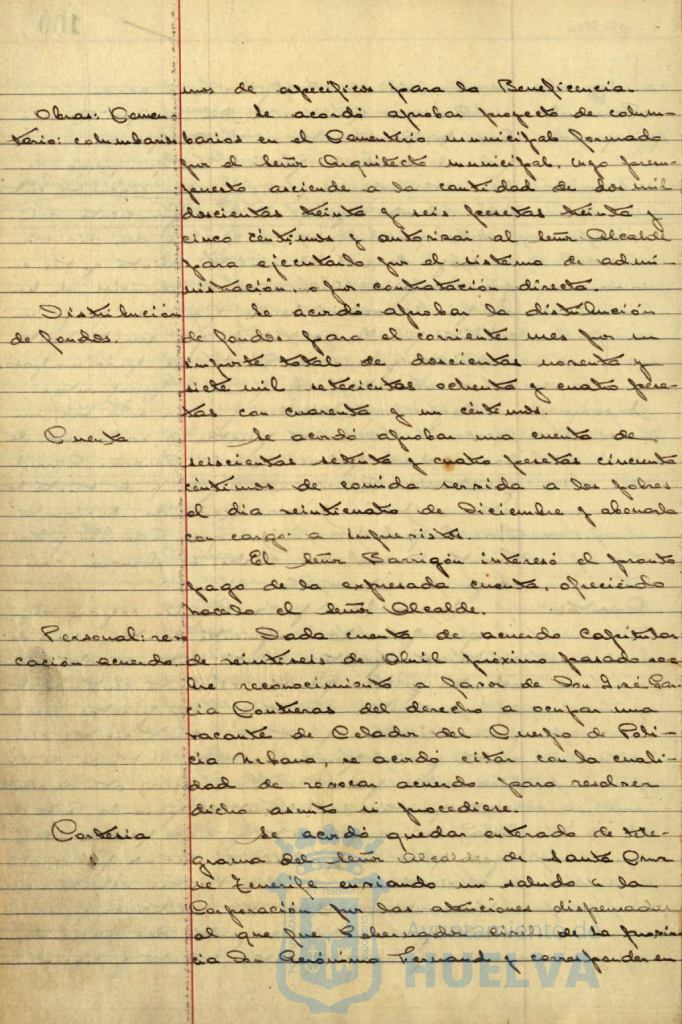 de específicos para la Beneficencia.
Obras: Cemen-
terio: columbarios
Se acordó aprobar proyecto de colum-
barios en el Cementerio municipal formado
por el Señor Arquitecto municipal, cuyo presu-
puesto asciende a la cantidad de dos mil
doscientas treinta y seis pesetas treinta y
cinco céntimos y autorizar al Señor Alcalde
para ejecutarlo por el sistema de admi-
nistración, o por contratación directa.
Distribución
de fondos.
Se acordó aprobar la distribución
de fondos para el corriente mes por un
importe total de doscientas noventa y
siete mil setecientas ochenta y cuatro pese-
tas con cuarenta y un céntimos.
Cuenta
Se acordó aprobar una cuenta de
seiscientas setenta y cuatro pesetas cincuenta
céntimos de comida servida a los pobres
el dia veinticuatro de Diciembre y abonarla
con cargo a Imprevistos.
El Señor Barrigón interesó el pronto
pago de la expresada cuenta, ofreciendo
hacerlo el Señor Alcalde.
Personal: revo
cación acuerdo.
Dada cuenta de acuerdo capitular
de veintiseis de Abril próximo pasado so-
bre reconocimiento a favor de Don José Gar-
cia Contreras del derecho a ocupar una
vacante de Celador del Cuerpo de Poli-
cia Urbana, se acordó citar con la cuali-
dad de revocar acuerdo para resolver
dicho asunto si procediere.
Cortesia
Se acordó quedar enterado de tele-
grama del Señor Alcalde de Santa Cruz
de Tenerife enviando un saludo a la
Corporación por las atenciones dispensadas
al que fue Gobernador civil de la provin-
cia Don Gerónimo Fernand y corresponder en
Ayuntamiento de
HUELVA